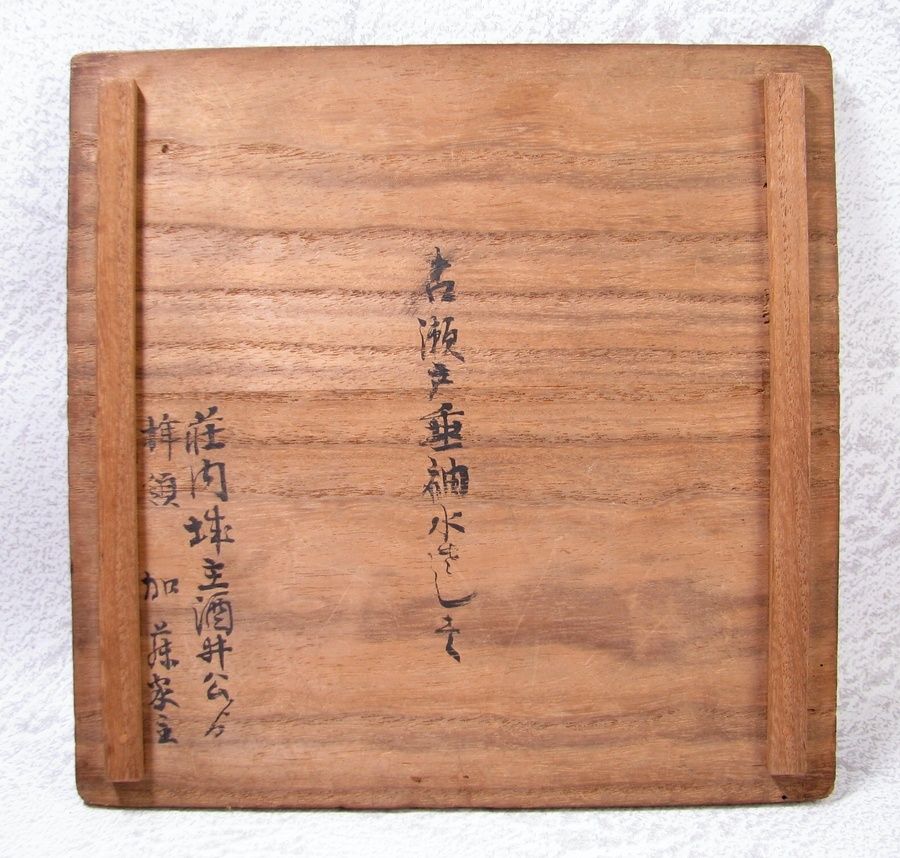 古瀬戸垂釉水さし 壱
荘内城主酒井公ゟ
拝領 加藤家主